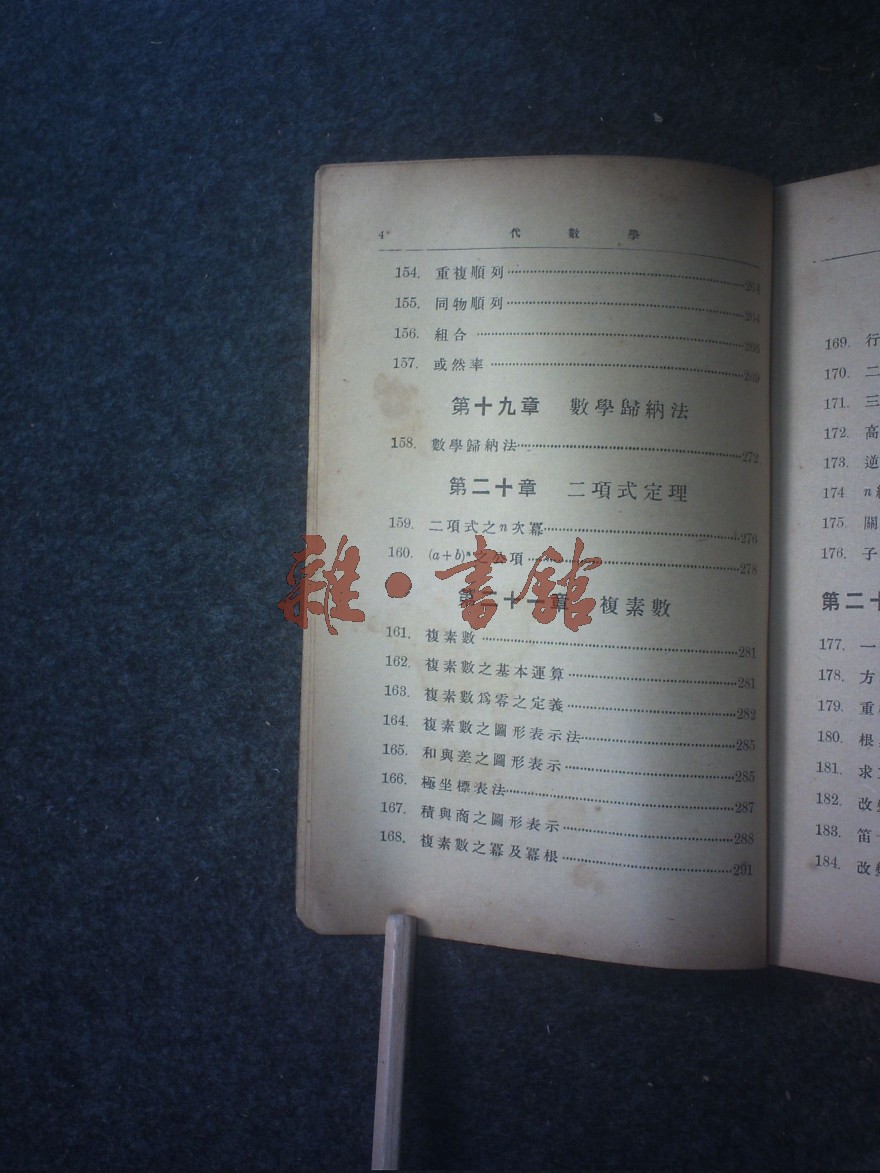 4 代數學
154. 重複順列 264
155. 同物順列 264
156. 組合
157. 或然率 269
第十九章 數學歸納法
158. 數學歸納法 272
第二十章 二項式定理
159. 二項式之n次冪 276
160. (a+b)ⁿ之公項 278
第二十一章 複素數
161. 複素數 281
162. 複素數之基本運算 281
163. 複素數爲零之定義 282
164. 複素數之圖形表示法 285
165. 和與差之圖形表示 285
166. 極坐標表法 287
167. 積與商之圖形表示 288
168. 複素數之冪及冪根 291
雜·書館
169. 行
170. 二
171. 三
172. 高
173. 逆
174 n
175. 關
176. 子
第二十
177. 一
178. 方
179. 重
180. 根
181. 求
182. 改
183. 笛
184. 改